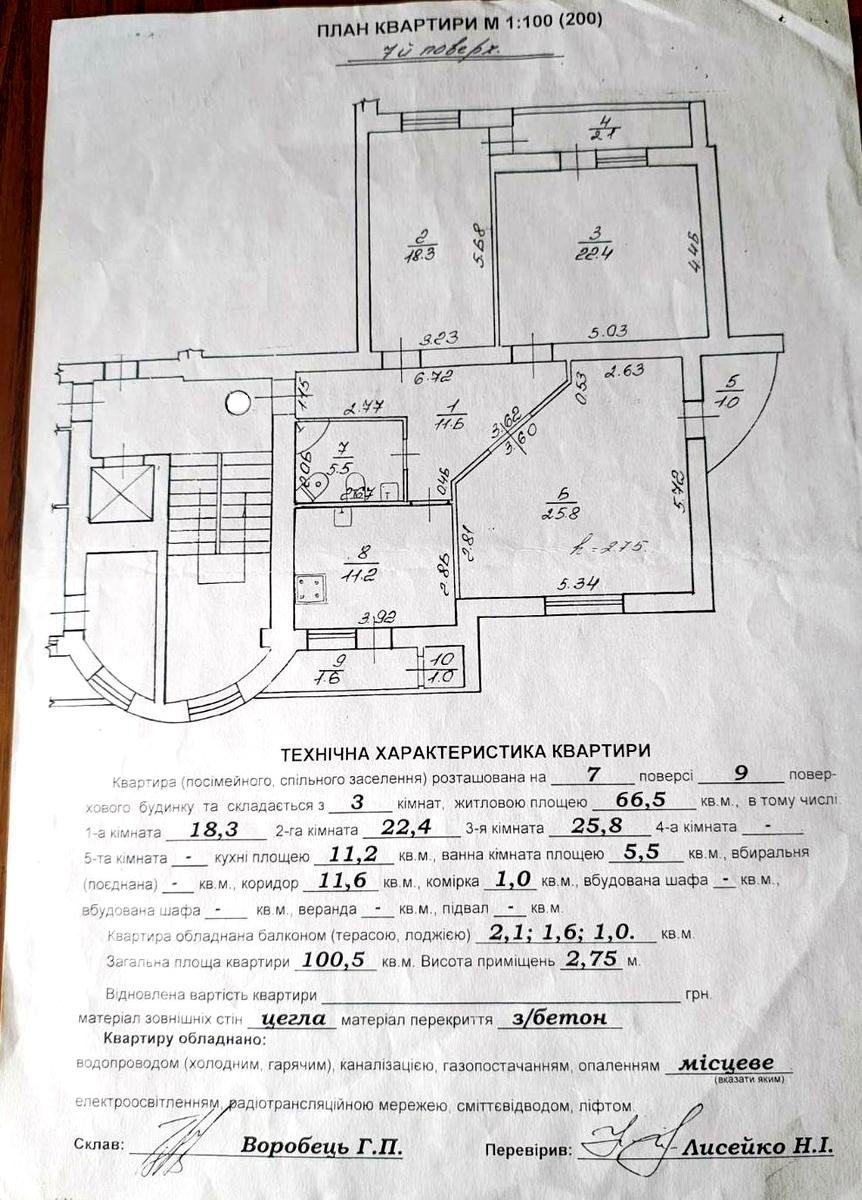 ПЛАН КВАРТИРИ М 1:100 (200)
7й поверх.
4
2.1
2
18.3
5.68
3
22.4
4.45
3.23
5.03
6.72
2.63
1.15
2.77
0.53
5
1.0
1
11.6
3.62
3.60
7
5.5
2.06
2.67
0.46
6
25.8
5.72
h=275.
2.81
8
11.2
2.85
5.34
3.92
9
1.6
10
1.0
ТЕХНІЧНА ХАРАКТЕРИСТИКА КВАРТИРИ
Квартира (посімейного, спільного заселення) розташована на 7 поверсі 9 повер-
хового будинку та складається з 3 кімнат, житловою площею 66,5 кв.м., в тому числі
1-а кімната 18,3 2-га кімната 22,4 3-я кімната 25,8 4-а кімната -
5-та кімната - кухні площею 11,2 кв.м., ванна кімната площею 5,5 кв.м., вбиральня
(поєднана) - кв.м., коридор 11,6 кв.м., комірка 1,0 кв.м., вбудована шафа - кв.м.,
вбудована шафа - кв.м., веранда - кв.м., підвал - кв.м.
Квартира обладнана балконом (терасою, лоджією) 2,1; 1,6; 1,0. кв.м.
Загальна площа квартири 100,5 кв.м. Висота приміщень 2,75 м.
Відновлена вартість квартири грн.
матеріал зовнішніх стін цегла матеріал перекриття з/бетон
Квартиру обладнано:
водопроводом (холодним, гарячим), каналізацією, газопостачанням, опаленням місцеве
(вказати яким)
електроосвітленням, радіотрансляційною мережею, сміттєвідводом, ліфтом.
Склав: Воробець Г.П. Перевірив: Лисейко Н.І.